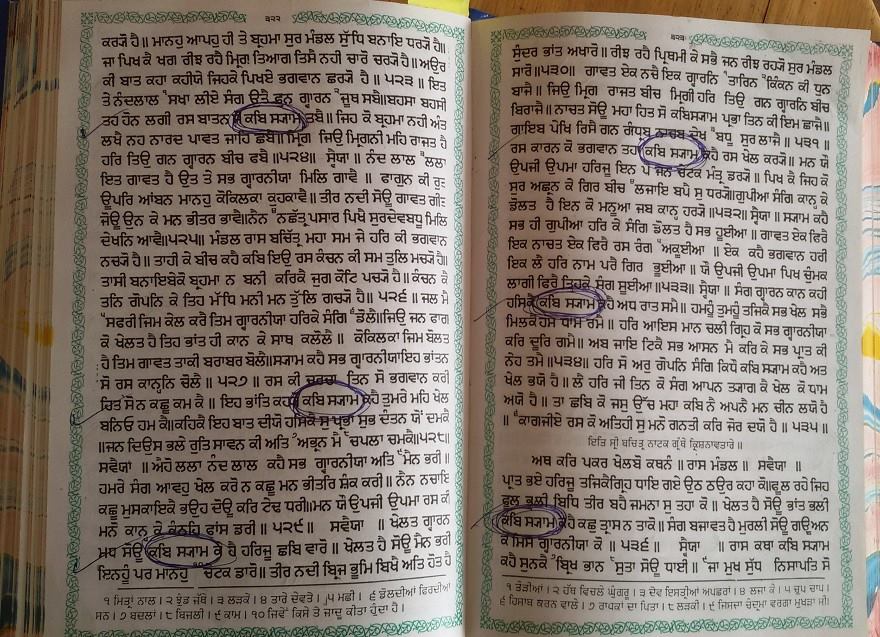 ੩੨੨
ਕਰ੍ਯੋ ਹੈ॥ ਮਾਨਹੁ ਆਪਹੁ ਹੀ ਤੇ ਬ੍ਰਹਮਾ ਸੁਰ ਮੰਡਲ ਸੁੱਧਿ ਬਨਾਇ ਧਰ੍ਯੋ ਹੈ॥
ਜਾ ਪਿਖ ਕੈ ਖਗ ਰੀਝ ਰਹੈ ਮ੍ਰਿਗ ਤਿਆਗ ਤਿਸੈ ਨਹੀ ਚਾਰੋ ਚਰ੍ਯੋ ਹੈ॥ ਅਉਰ
ਕੀ ਬਾਤ ਕਹਾ ਕਹੀਯੇ ਜਿਹਕੇ ਪਿਖਏ ਭਗਵਾਨ ਛਰ੍ਯੋ ਹੈ ॥ ੫੨੩ ॥ ਇਤ
ਤੇ ਨੰਦਲਾਲ ਸਖਾ ਲੀਏ ਸੰਗ ਉਤੈ ਫੁਨ ਗ੍ਵਾਰਨ ਜੂਥ ਸਬੈ॥ਬਹਸਾ ਬਹਸੀ
ਤਹ ਹੋਨ ਲਗੀ ਰਸ ਬਾਤਨ ਸੋ ਕਬਿ ਸ੍ਯਾਮ ਤਬੈ॥ ਜਿਹ ਕੋ ਬ੍ਰਹਮਾ ਨਹੀ ਅੰਤ
ਲਖੈ ਨਹ ਨਾਰਦ ਪਾਵਤ ਜਾਹਿ ਛਬੈ॥ਮ੍ਰਿਗ ਜਿਉ ਮ੍ਰਿਗਨੀ ਮਹਿ ਰਾਜਤ ਹੈ
ਹਰਿ ਤਿਉ ਗਨ ਗ੍ਵਾਰਨ ਬੀਚ ਫਬੈ॥੫੨੪॥ ਸ੍ਵੈਯਾ ॥ ਨੰਦ ਲਾਲ ਲਲਾ
ਇਤ ਗਾਵਤ ਹੈ ਉਤ ਤੇ ਸਭ ਗ੍ਵਾਰਨੀਯਾ ਮਿਲਿ ਗਾਵੈ ॥ ਫਾਗੁਨ ਕੀ ਰੁਤ
ਊਪਰਿ ਆਂਬਨ ਮਾਨਹੁ ਕੋਕਿਲਕਾ ਕੁਹਕਾਵੈ॥ ਤੀਰ ਨਦੀ ਸੋਊ ਗਾਵਤ ਗੀਤ
ਜੋਊ ਉਨ ਕੇ ਮਨ ਭੀਤਰ ਭਾਵੈ॥ਨੈਨ ਨਛੱਤ੍ਰ ਪਸਾਰ ਪਿਖੈ ਸੁਰਦੇਵਬਧੂ ਮਿਲਿ
ਦੇਖਨਿ ਆਵੈ॥੫੨੫॥ ਮੰਡਲ ਰਾਸ ਬਚਿੱਤ੍ਰ ਮਹਾ ਸਮ ਜੇ ਹਰਿ ਕੀ ਭਗਵਾਨ
ਨਚ੍ਯੋ ਹੈ॥ ਤਾਹੀ ਕੇ ਬੀਚ ਕਹੈ ਕਬਿ ਇਉ ਰਸ ਕੰਚਨ ਕੀ ਸਮ ਤੁਲਿ ਮਚ੍ਯੋ ਹੈ॥
ਤਾਸੀ ਬਨਾਇਬੇਕੋ ਬ੍ਰਹਮਾ ਨ ਬਨੀ ਕਰਿਕੈ ਜੁਗ ਕੋਟਿ ਪਚ੍ਯੋ ਹੈ॥ ਕੰਚਨ ਕੈ
ਤਨਿ ਗੋਪਨਿ ਕੇ ਤਿਹ ਮੱਧਿ ਮਨੀ ਮਨ ਤੁੱਲਿ ਗਚ੍ਯੋ ਹੈ॥ ੫੨੬ ॥ ਜਲ ਮੈ
ਸਫਰੀ ਜਿਮ ਕੇਲ ਕਰੈ ਤਿਮ ਗ੍ਵਾਰਨੀਯਾ ਹਰਿਕੇ ਸੰਗਿ ਡੋਲੈ॥ਜਿਉ ਜਨ ਫਾਗ
ਕੋ ਖੇਲਤ ਹੈ ਤਿਹ ਭਾਂਤ ਹੀ ਕਾਨ ਕੇ ਸਾਥ ਕਲੋਲੈ ॥ ਕੋਕਿਲਕਾ ਜਿਮ ਬੋਲਤ
ਹੈ ਤਿਮ ਗਾਵਤ ਤਾਕੀ ਬਰਾਬਰ ਬੋਲੈ॥ਸ੍ਯਾਮ ਕਹੈ ਸਭ ਗ੍ਵਾਰਨੀਯਾਇਹ ਭਾਂਤਨ
ਸੋ ਰਸ ਕਾਨ੍ਹਨਿ ਚੋਲੈ ॥ ੫੨੭ ॥ ਰਸ ਕੀ ਚਰਚਾ ਤਿਨ ਸੋ ਭਗਵਾਨ ਕਰੀ
ਹਿਤ ਸੋ ਨ ਕਛੂ ਕਮ ਕੈ ॥ ਇਹ ਭਾਂਤਿ ਕਹ੍ਯੋ ਕਬਿ ਸ੍ਯਾਮ ਕਹੈ ਤੁਮਰੇ ਮਹਿ ਖੇਲ
ਬਨਿਓ ਹਮ ਕੈ॥ਕਹਿਕੈ ਇਹ ਬਾਤ ਦੀਯੋ ਹਸਿਕੈ ਸੁ ਪ੍ਰਭਾ ਸੁਭ ਦੰਤਨ ਯੌ ਦਮਕੈ
॥ਜਨ ਦਿਉਸ ਭਲੇ ਰੁਤਿ ਸਾਵਨ ਕੀ ਅਤਿ ਅਭ੍ਰਨ ਮੈ ਚਪਲਾ ਚਮਕੈ॥੫੨੮॥
ਸਵੈਯਾ ॥ ਐਹੋ ਲਲਾ ਨੰਦ ਲਾਲ ਕਹੈ ਸਭ ਗ੍ਵਾਰਨੀਯਾ ਅਤਿ ਮੈਨ ਭਰੀ ॥
ਹਮਰੇ ਸੰਗ ਆਵਹੁ ਖੇਲ ਕਰੋ ਨ ਕਛੂ ਮਨ ਭੀਤਰਿ ਸ਼ੰਕ ਕਰੀ ॥ ਨੈਨ ਨਚਾਇ
ਕਛੂ ਮੁਸਕਾਇਕੈ ਭਉਹ ਦੋਊ ਕਰਿ ਟੇਢ ਧਰੀ॥ਮਨ ਯੌ ਉਪਜੀ ਉਪਮਾ ਰਸ ਕੀ
ਮਨੋ ਕਾਨ੍ਹ ਕੇ ਕੰਠਹਿ ਫਾਂਸ ਡਰੀ ॥ ੫੨੯ ॥ ਸਵੈਯਾ ॥ ਖੇਲਤ ਗ੍ਵਾਰਨ
ਮਧ ਸੋਊ ਕਬਿ ਸ੍ਯਾਮ ਕਹੈ ਹਰਿਜੂ ਛਬਿ ਵਾਰੋ ॥ ਖੇਲਤ ਹੈ ਸੋਊ ਮੈਨ ਭਰੀ
ਇਨਹੂੰ ਪਰ ਮਾਨਹੁ ਚੇਟਕ ਡਾਰੋ॥ ਤੀਰ ਨਦੀ ਬ੍ਰਿਜ ਭੂਮਿ ਬਿਖੈ ਅਤਿ ਹੋਤ ਹੈ
੧ ਮਿਤ੍ਰਾਂ ਨਾਲ। ੨ ਝੁੰਡ ਜੱਥੇ। ੩ ਲੜਕੇ। ੪ ਤਾਰੇ ਦੇਵਤੇ। ੫ ਮਛੀ। ੬ ਡੋਲਦੀਆਂ ਫਿਰਦੀਆਂ
ਸਨ। ੭ ਬਦਲਾਂ। ੮ ਬਿਜਲੀ। ੯ ਕਾਮ। ੧੦ ਜਿਵੇਂ ਕਿਸੇ ਤੇ ਜਾਦੂ ਕੀਤਾ ਹੁੰਦਾ ਹੈ।
੩੨੩
ਸੁੰਦਰ ਭਾਂਤ ਅਖਾਰੋ॥ ਰੀਝ ਰਹੈ ਪ੍ਰਿਥਮੀ ਕੇ ਸਭੈ ਜਨ ਰੀਝ ਰਹ੍ਯੋ ਸੁਰ ਮੰਡਲ
ਸਾਰੋ॥੫੩੦॥ ਗਾਵਤ ਏਕ ਨਚੈ ਇਕ ਗ੍ਵਾਰਨਿ ਤਾਰਿਨ ਕਿੰਕਨ ਕੀ ਧੁਨ
ਬਾਜੈ॥ ਜਿਉ ਮ੍ਰਿਗ ਰਾਜਤ ਬੀਚ ਮ੍ਰਿਗੀ ਹਰਿ ਤਿਉ ਗਨ ਗ੍ਵਾਰਨਿ ਬੀਚ
ਬਿਰਾਜੈ॥ ਨਾਚਤ ਸੋਊ ਮਹਾ ਹਿਤ ਸੋ ਕਬਿਸ੍ਯਾਮ ਪ੍ਰਭਾ ਤਿਨ ਕੀ ਇਮ ਛਾਜੈ॥
ਗਾਇਬ ਪੇਖਿ ਰਿਸੈ ਗਨ ਗੰਧ੍ਰਬ ਨਾਚਬ ਦੇਖ ਬਧੂ ਸੁਰ ਲਾਜੈ॥ ੫੩੧ ॥
ਰਸ ਕਾਰਨ ਕੋ ਭਗਵਾਨ ਤਹਾ ਕਬਿ ਸ੍ਯਾਮ ਕਹੈ ਰਸ ਖੇਲ ਕਰ੍ਯੋ॥ ਮਨ ਯੌ
ਉਪਜੀ ਉਪਮਾ ਹਰਿਜੂ ਇਨ ਪੈ ਜਨ ਚੇਟਕ ਮੰਤ੍ਰ ਡਰ੍ਯੋ॥ ਪਿਖ ਕੈ ਜਿਹ ਕੋ
ਸੁਰ ਅਛ੍ਰਨ ਕੇ ਗਿਰ ਬੀਚ ਲਜਾਇ ਬਪੈ ਸੁ ਧਰ੍ਯੋ॥ਗੁਪੀਆ ਸੰਗਿ ਕਾਨ੍ਹ ਕੇ
ਡੋਲਤ ਹੈ ਇਨ ਕੋ ਮਨੂਆ ਜਬ ਕਾਨ੍ਹ ਹਰ੍ਯੋ॥੫੩੨॥ ਸ੍ਵੈਯਾ॥ ਸ੍ਯਾਮ ਕਹੈ
ਸਭ ਹੀ ਗੁਪੀਆ ਹਰਿ ਕੇ ਸੰਗਿ ਡੋਲਤ ਹੈ ਸਭ ਹੂਈਆ॥ ਗਾਵਤ ਏਕ ਫਿਰੈ
ਇਕ ਨਾਚਤ ਏਕ ਫਿਰੈ ਰਸ ਰੰਗ ਅਕੂਈਆ ॥ ਏਕ ਕਹੈ ਭਗਵਾਨ ਹਰੀ
ਇਕ ਲੈ ਹਰਿ ਨਾਮ ਪਰੈ ਗਿਰ ਭੂਈਆ॥ ਯੌ ਉਪਜੀ ਉਪਮਾ ਪਿਖ ਚੁੰਮਕ
ਲਾਗੀ ਫਿਰੈ ਤਿਹਕੇ ਸੰਗ ਸੂਈਆ॥੫੩੩॥ ਸ੍ਵੈਯਾ॥ ਸੰਗ ਗ੍ਵਾਰਨ ਕਾਨ ਕਹੀ
ਹਸਿਕੈ ਕਬਿ ਸ੍ਯਾਮ ਕਹੈ ਅਧ ਰਾਤ ਸਮੈ॥ ਹਮਹੂੰ ਤੁਮਹੂੰ ਤਜਿਕੈ ਸਭ ਖੇਲ ਸਭੈ
ਮਿਲਕੈ ਹਮ ਧਾਮ ਰਮੈ॥ ਹਰਿ ਆਇਸ ਮਾਨ ਚਲੀ ਗ੍ਰਿਹ ਕੋ ਸਭ ਗ੍ਵਾਰਨੀਯਾ
ਕਰਿ ਦੂਰਿ ਗਮੈ॥ ਅਬ ਜਾਇ ਟਿਕੈ ਸਭ ਆਸਨ ਮੈ ਕਰਿ ਕੈ ਸਭ ਪ੍ਰਾਤ ਕੀ
ਨੇਹ ਤਮੈ॥੫੩੪॥ ਹਰਿ ਸੋ ਅਰੁ ਗੋਪਨਿ ਸੰਗਿ ਕਿਧੌ ਕਬਿ ਸ੍ਯਾਮ ਕਹੈ ਅਤ
ਖੇਲ ਭਯੋ ਹੈ॥ ਲੈ ਹਰਿ ਜੀ ਤਿਨ ਕੋ ਸੰਗ ਆਪਨ ਤ੍ਯਾਗ ਕੈ ਖੇਲ ਕੋ ਧਾਮ
ਅਯੋ ਹੈ॥ ਤਾ ਛਬਿ ਕੋ ਜਸੁ ਉੱਚ ਮਹਾ ਕਬਿ ਨੈ ਅਪਨੈ ਮਨ ਚੀਨ ਲਯੋ ਹੈ
॥ ਕਾਗਜੀਏ ਰਸ ਕੋ ਅਤਿਹੀ ਸੁ ਮਨੋ ਗਨਤੀ ਕਰਿ ਜੋਰ ਦਯੋ ਹੈ ॥ ੫੩੫ ॥
ਇਤਿ ਸ੍ਰੀ ਬਚਿਤ੍ਰ ਨਾਟਕ ਗ੍ਰੰਥੇ ਕ੍ਰਿਸ਼ਨਾਵਤਾਰੇ ॥
ਅਥ ਕਰਿ ਪਕਰ ਖੇਲਬੋ ਕਥਨੰ ॥ ਰਾਸ ਮੰਡਲ ॥ ਸਵੈਯਾ ॥
ਪ੍ਰਾਤ ਭਏ ਹਰਿਜੂ ਤਜਿਕੈਗ੍ਰਿਹ ਧਾਇ ਗਏ ਉਠ ਠਉਰ ਕਹਾ ਕੋ॥ਫੂਲ ਰਹੇ ਜਿਹ
ਫੂਲ ਭਲੀ ਬਿਧਿ ਤੀਰ ਬਹੈ ਜਮਨਾ ਸੁ ਤਹਾ ਕੋ ॥ ਖੇਲਤ ਹੈ ਸੋਊ ਭਾਂਤ ਭਲੀ
ਕਬਿ ਸ੍ਯਾਮ ਕਹੈ ਕਛੁ ਤ੍ਰਾਸ ਨ ਤਾਕੋ॥ ਸੰਗ ਬਜਾਵਤ ਹੈ ਮੁਰਲੀ ਸੋਊ ਗਊਅਨ
ਕੇ ਮਿਸ ਗ੍ਵਾਰਨੀਯਾ ਕੋ ॥ ੫੩੬ ॥ ਸ੍ਵੈਯਾ ॥ ਰਾਸ ਕਥਾ ਕਬਿ ਸ੍ਯਾਮ
ਕਹੈ ਸੁਨਕੈ ਬ੍ਰਿਖ ਭਾਨ ਸੁਤਾ ਸੋਊ ਧਾਈ॥ ਜਾ ਮੁਖ ਸੁੱਧ ਨਿਸਾਪਤਿ ਸੋ
੧ ਤੌੜੀਆਂ। ੨ ਹੱਥ ਵਿਚਲੇ ਘੁੰਗਰੂ। ੩ ਦੇਵ ਇਸਤ੍ਰੀਆਂ ਅਪਛਰਾਂ। ੪ ਲਜਾ ਕੇ। ੫ ਚੁਪ ਚਾਪ।
੬ ਹਿਸਾਬ ਕਰਨ ਵਾਲੇ। ੭ ਰਾਧਕਾ ਦਾ ਪਿਤਾ। ੮ ਲੜਕੀ। ੯ ਜਿਸਦਾ ਚੰਦ੍ਰਮਾ ਵਰਗਾ ਮੁਖੜਾ ਸੀ।